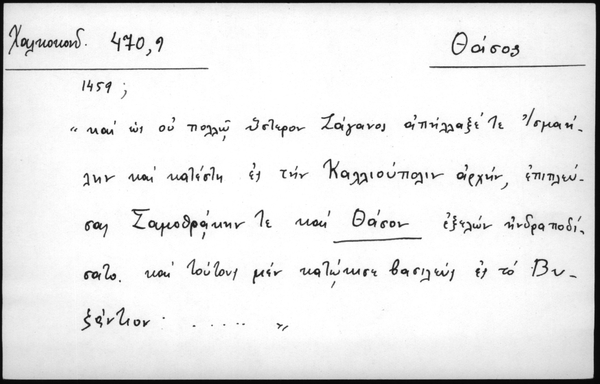 Χαλκοκονδ. 470,9 Θάσος
1459 ;
„ καὶ ὡς οὐ πολλῷ ὕστερον Ζάγανος ἀπήλλαξέ τε Ἰσμαή-
λην καὶ κατέστη ἐς τὴν Καλλιούπολιν ἀρχήν, ἐπιπλεύ-
σας Σαμοθρᾴκην τε καὶ Θάσον ἐξελὼν ἠνδραποδί-
σατο. καὶ τούτους μὲν κατῴκησε βασιλεὺς ἐς τὸ Βυ-
ζάντιον : ..... „